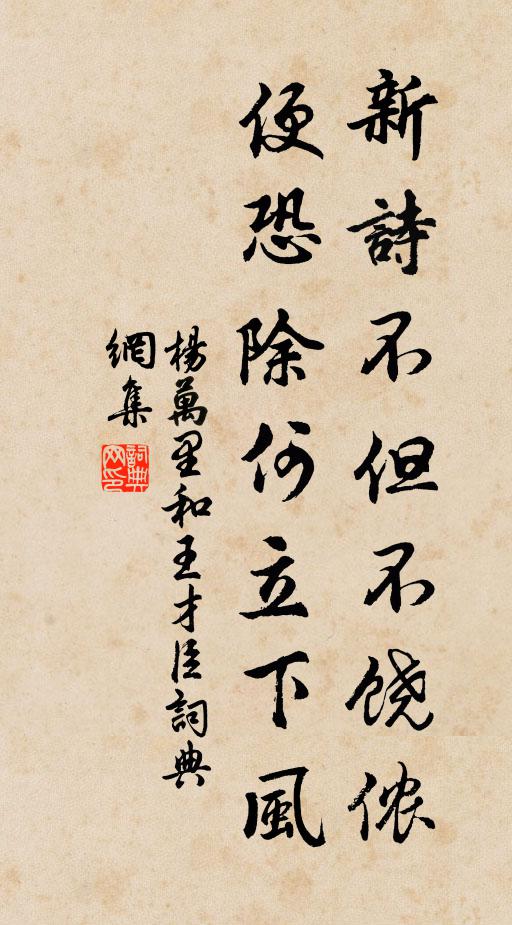 新詩不但不饶侬
便恐除何立下風
楊萬里和王才臣詞典
網集
詞典网印